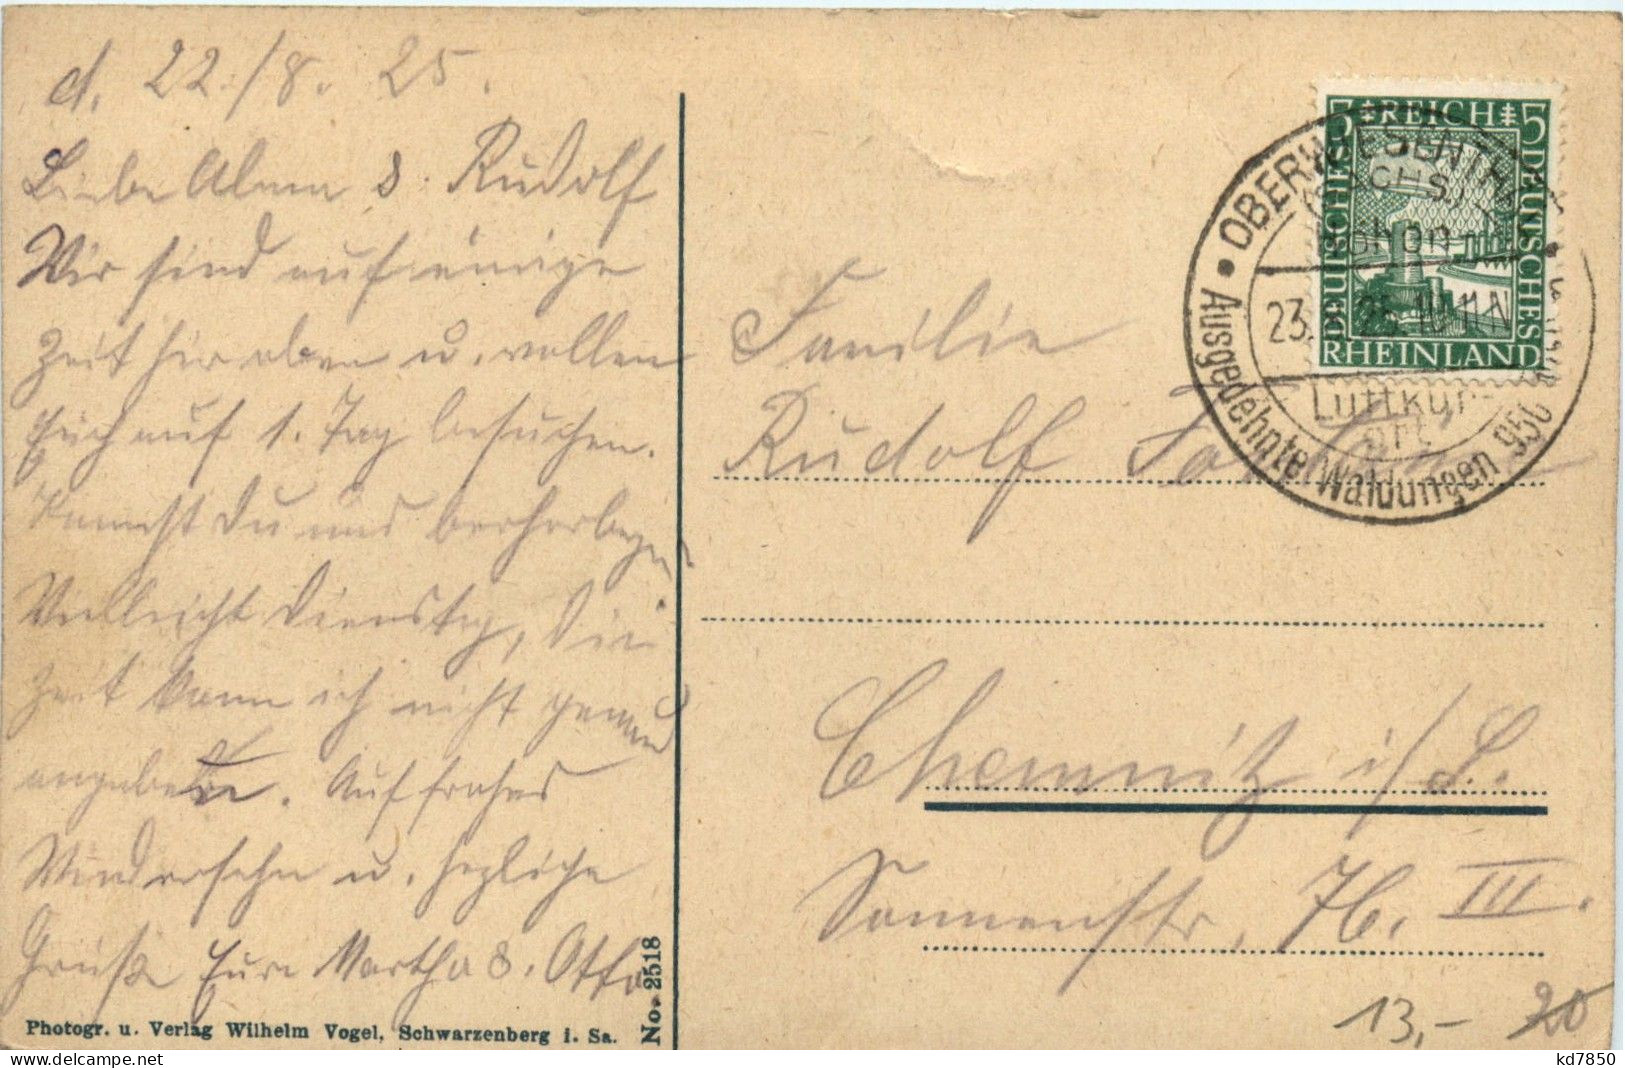 d. 22./8. 25.
Liebe Alma & Rudolf
Wir sind auf einige
Zeit hier oben u. wollen
Euch auf 1. Tag besuchen.
Kannst Du uns
Vielleicht Dienstag, die
Zeit kann ich nicht genau
angeben. Auf frohes
Wiedersehn u. herzliche
Grüße Eure Martha & Otto
Photogr. u. Verlag Wilhelm Vogel, Schwarzenberg i. Sa.
No. 2518
5 REICH 5
DEUTSCHES
DEUTSCHES
RHEINLAND
OBERWIESENTHAL
(SACHS.)
23. 8. 25. 10-11 N
Luftkur-
ort
Ausgedehnte Waldungen 950
Familie
Rudolf
Chemnitz i/S.
Sonnenstr. 76. III.
13,- 20
kd7850